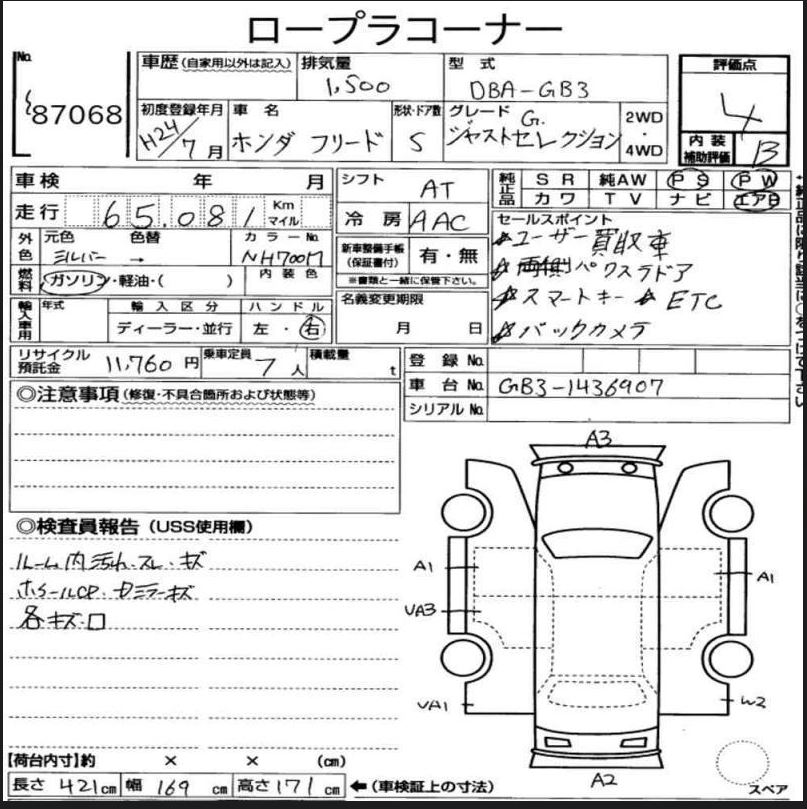 ロープラコーナー
No.
87068
車歴(自家用以外は記入)
排気量
1,500
型式
DBA-GB3
評価点
4
内装
補助評価
B
初度登録年月
H24/7月
車名
ホンダ フリード
形状・ドア数
5
グレード G.
ジャストセレクション
2WD
・
4WD
車検 年 月
シフト AT
純正品
SR 純AW PS PW
カワ TV ナビ エアB
走行 65,081 Km マイル
冷房 AAC
セールスポイント
ユーザー買収車
両側パワスラドア
スマートキー ETC
バックカメラ
外色
元色 色替 カラーNo.
シルバー → NH700M
新車整備手帳
(保証書付)
有・無
※書類と一緒に保管下さい。
燃料
ガソリン・軽油・( )
内装色
輸入車用
年式
輸入区分
ディーラー・並行
ハンドル
左・右
名義変更期限
月 日
リサイクル
預託金
11,760円
乗車定員 7人
積載量 t
登録No.
車台No. GB3-1436907
シリアルNo.
◎注意事項(修復・不具合箇所および状態等)
◎検査員報告(USS使用欄)
ルーム内汚れ・スレ・キズ
ホイールCP・ドミラーキズ
各キズ・凹
A3
A1
A1
UA3
UA1
W2
A2
スペア
【荷台内寸】約 × × (cm)
長さ 421cm 幅 169cm 高さ 171cm ←(車検証上の寸法)